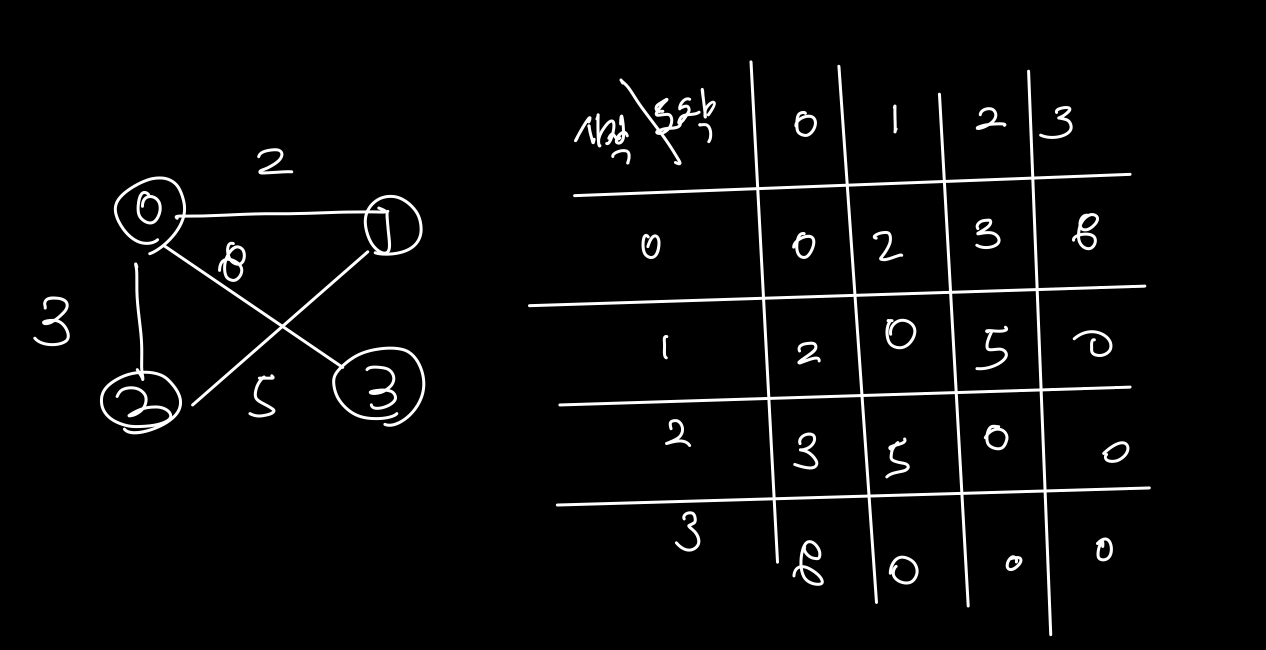 2
0 1
8
3
2 5 3
0 1 2 3
0 0 2 3 8
1 2 0 5 0
2 3 5 0 0
3 8 0 0 0